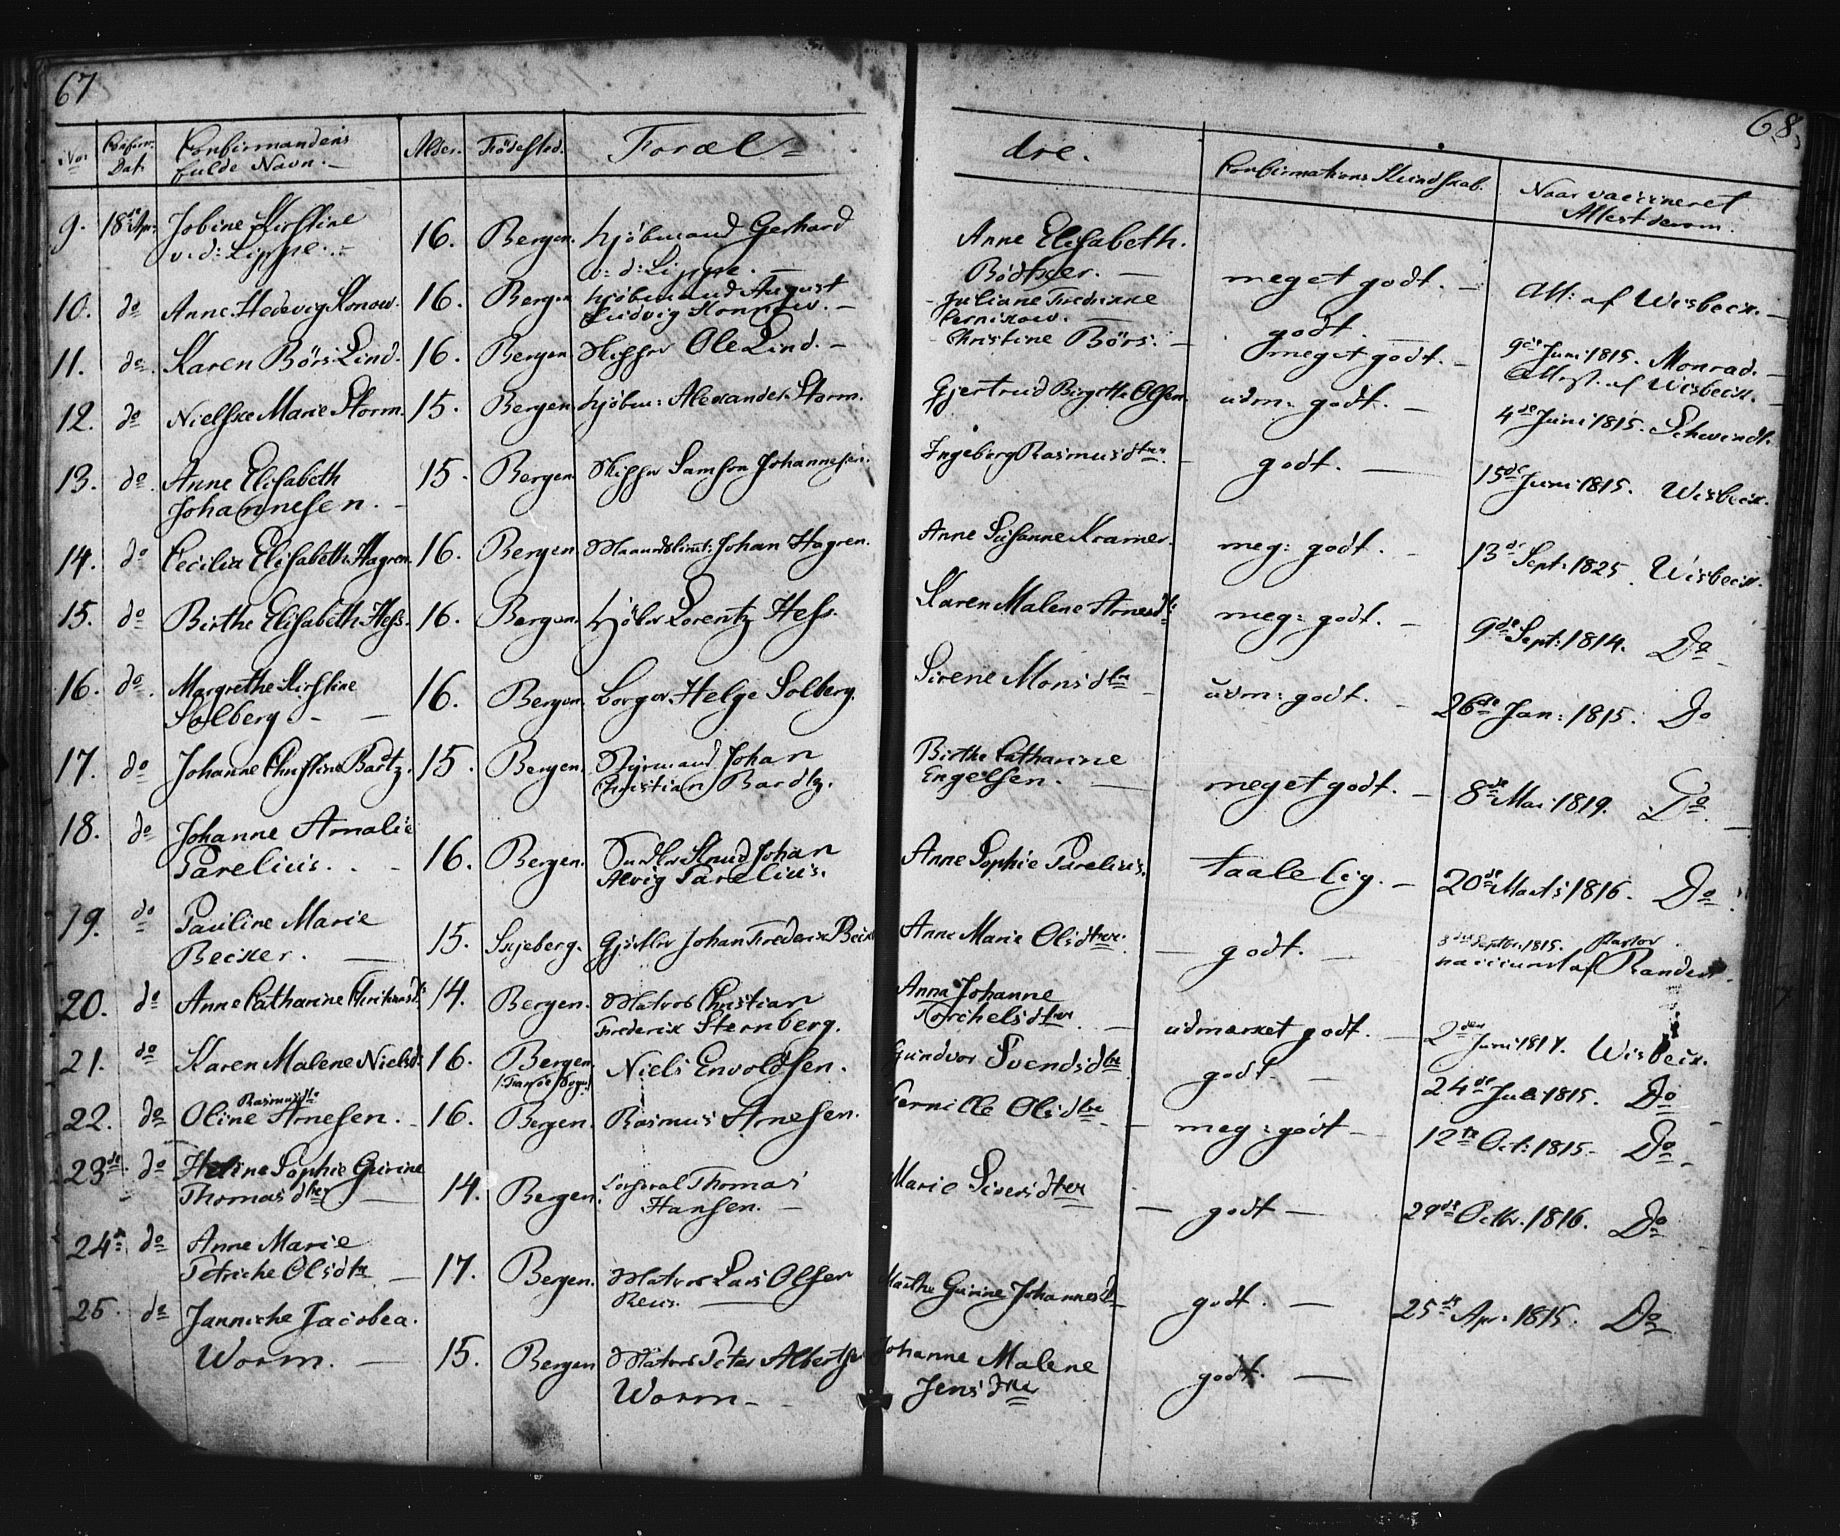 67
68.
No. Confirm: Dat. Confirmandens fulde Navn. Alder. Födested. Foræl= dre. Confirmations Kundskab. Naar vaccineret Attest derom.
9. 18de Apr: Jobine Kirstine 16. Bergen. Kjöbmand Gerhard Anne Elisabeth.
v: d: Lippe. v: d: Lippe. Bödtker. meget godt. Att: af Wisbeck.
10. do Anne Hedevig Konow. 16. Bergen Kjöbmand August Juliane Fredrikke
Ludvig Konnow. godt.
11. do Karen Börs Lind. 16. Bergen Skipper Ole Lind. Christine Börs. meget godt. 9de Juni 1815. Monrad.
Attest. af Wisbeck.
12. do Nielske Marie Storm. 15. Bergen Kjöbm: Alexander Storm. Gjertrud Birgitte Olsen. udm: godt. 4de Juni 1815. Schwindt.
13. do Anne Elisabeth 15. Bergen Skipper Samson Johannesen. Ingeborg Rasmusdtter godt. 15de Juni 1815. Wisbeck.
Johannesen.
14. do Cecilia Elisabeth Hagren 16. Bergen Johan Hagren. Anne Susanne Kramer. meg: godt. 13de Sept: 1825. Wisbeck.
15. do Birthe Elisabeth Hess. 16. Bergen. Lorentz Hess. Karen Malene Arnesdtr meg: godt. 9de Sept: 1814. Do
16. do Margrethe Kirstine 16. Bergen. Borger Helge Solberg. Sirene Monsdtr udm: godt. 26de Jan: 1815. Do
Solberg
17. do Johanne Christine Bartz. 15. Bergen. Styrmand Johan Birthe Catharine
Christian Bardtz. Engelsen. meget godt. 8de Mai 1819. Do
18. do Johanne Amalie
Parelius. 16. Bergen. Knud Johan Anne Sophie Parelius. taalelig. 20de Marts 1816. Do
Alvig Parelius.
19. do Pauline Marie
Becker. 15. Skjeberg. Gjörtler Johan Frederik Beck Anne Marie Olsdtter. godt. 3die Septbr. 1815. Pastor
vaccineret af Randers.
20. do Anne Catharine Christiansdtr 14. Bergen. Matros Christian Anna Johanne
Frederik Sternberg. Torchelsdtter udmærket godt. 2den Juni 1817. Wisbeck.
21. do Karen Malene Nielsd. 16. Bergen Niels Envoldsen. Gundvor Svendsdtr godt. 24de Juli 1815. Do
22. do Rasmusdtr
Oline Arnesen. 16. Bergen. Rasmus Arnesen. Pernille Olsdtr meg: godt 12te Oct: 1815. Do
23de do Heline Sophie Gurine
Thomasdtter 14. Bergen. Corporal Thomas Marie Siversdtter godt 29de Octbr. 1816. Do
Hansen.
24de do Anne Marie
Petriche Olsdtr 17. Bergen. Matros Lars Olsen Marthe Gurine Johannesd. godt. 25de Apr: 1815. Do
25. do Janniche Jacobea.
Worm. 15. Bergen Matros Peter Albertsen Johanne Malene godt.
Worm Jensdtter